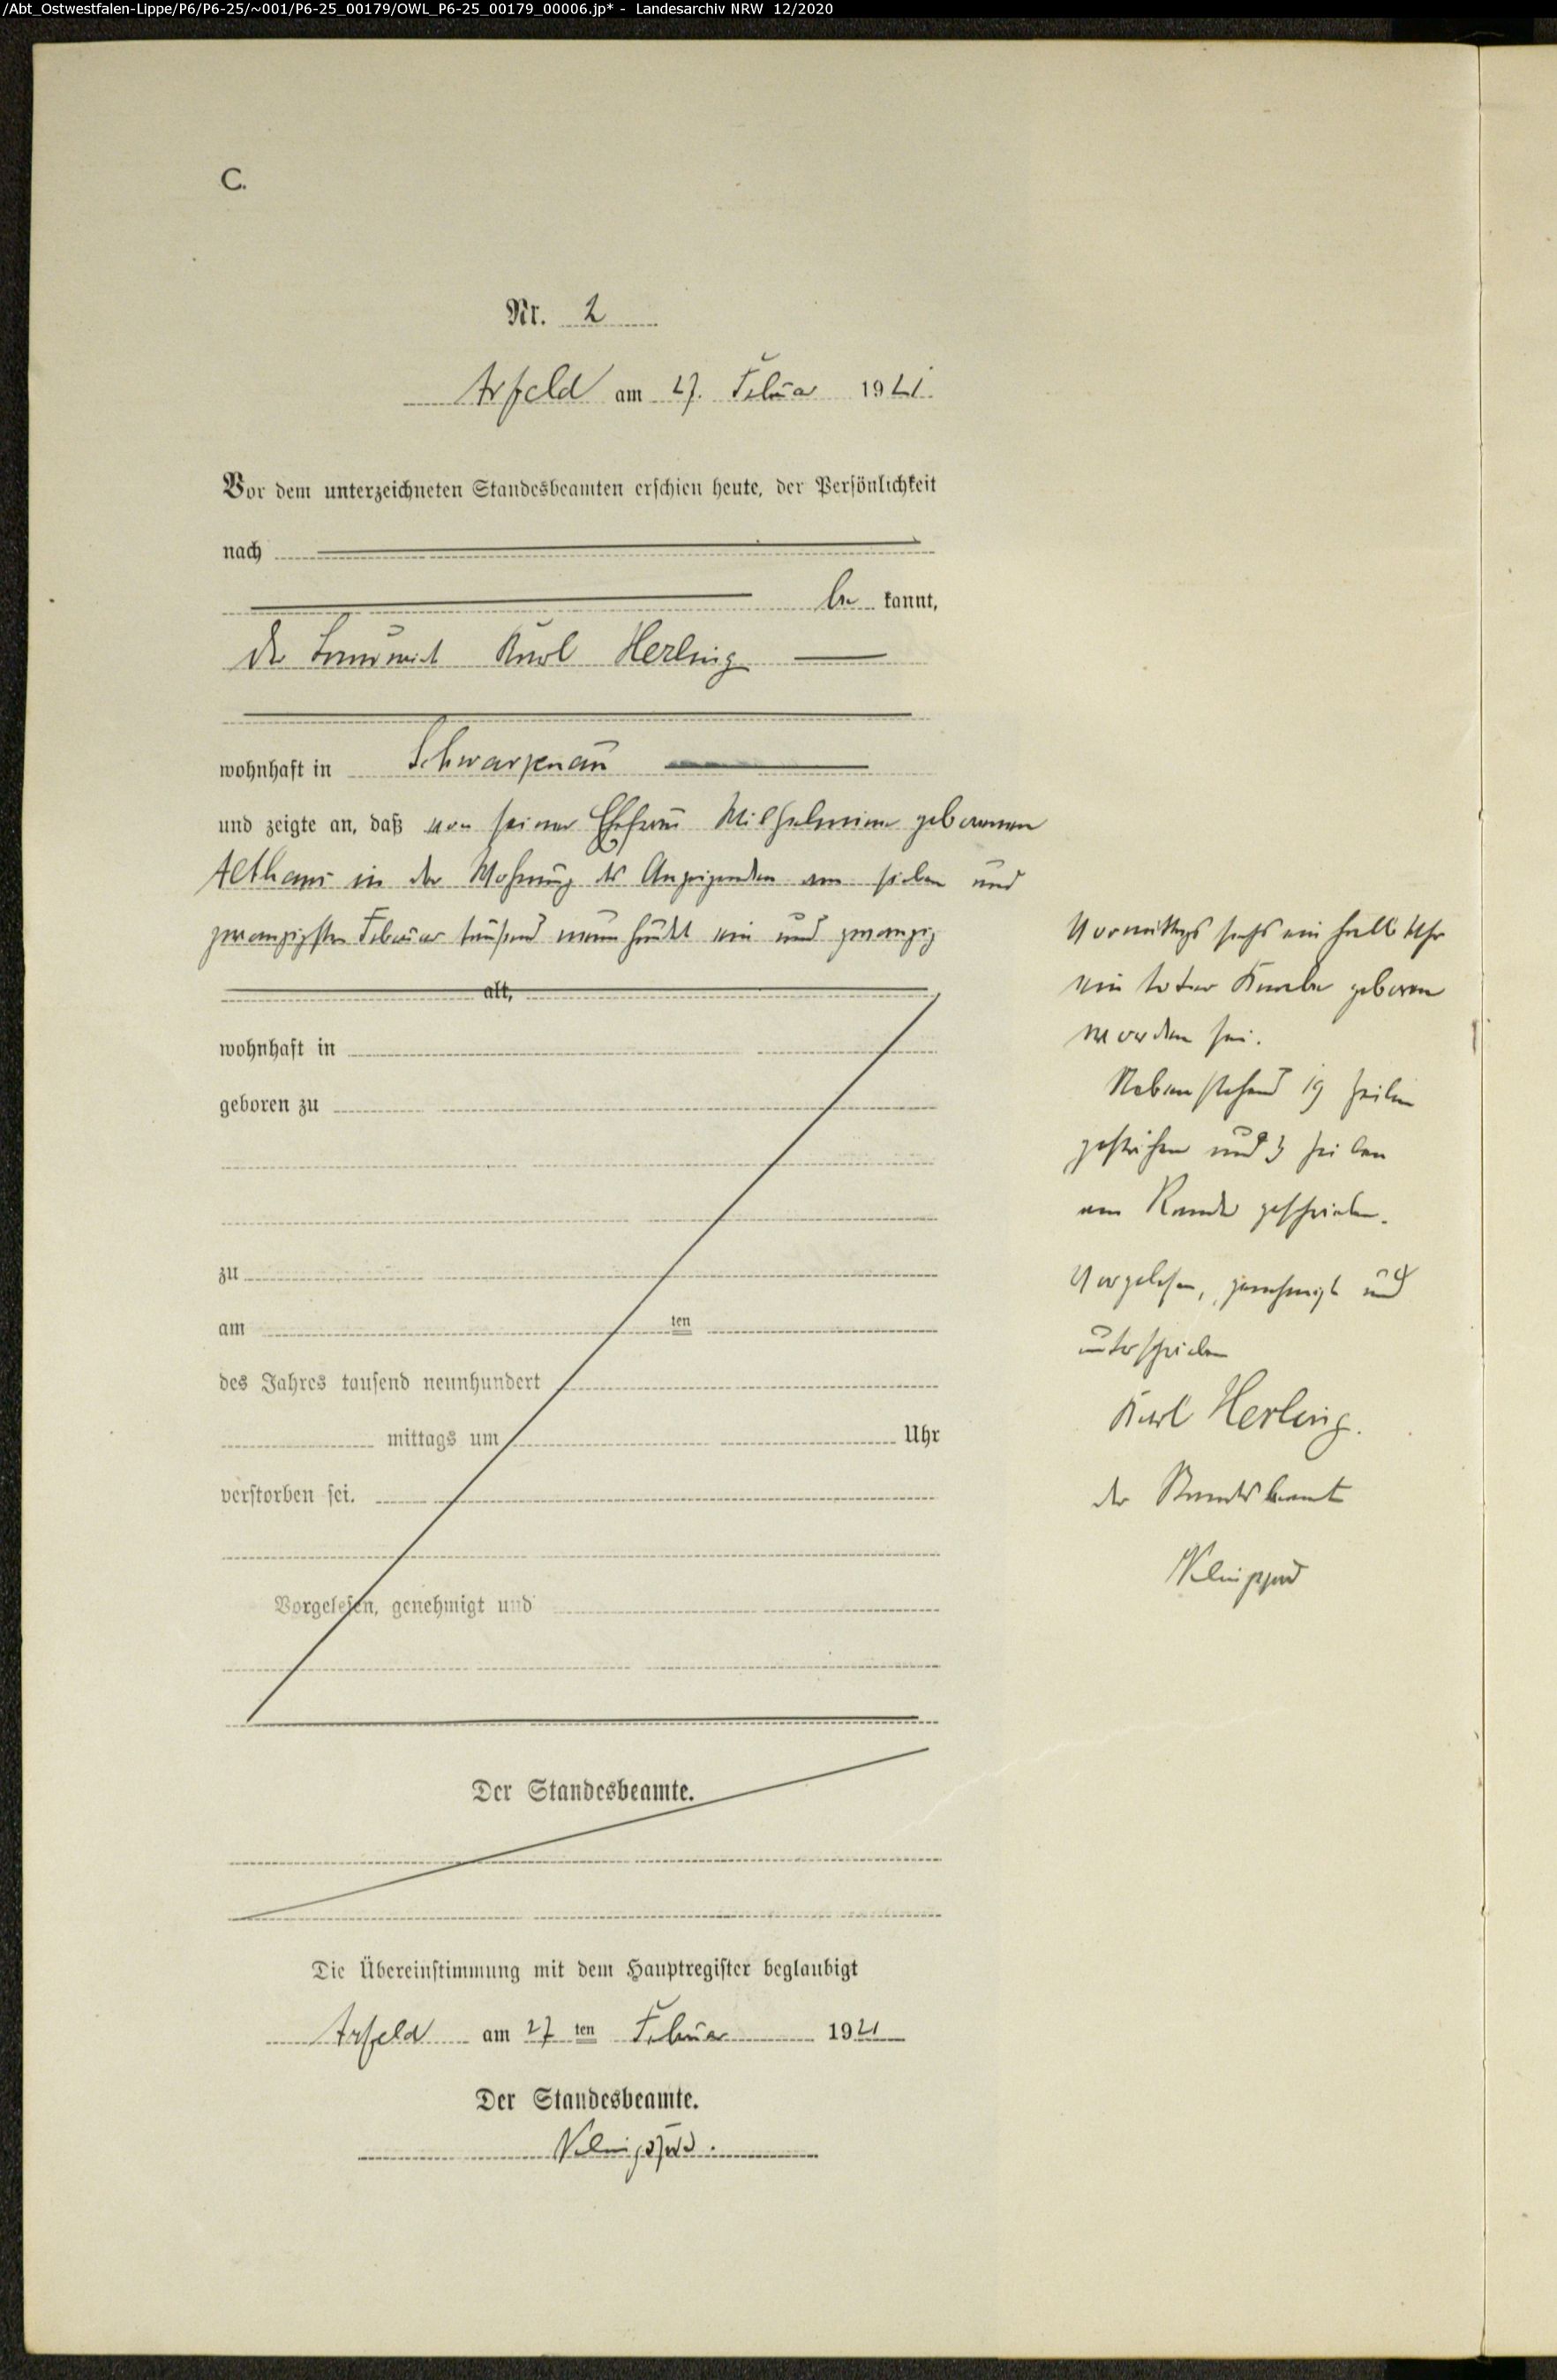 /Abt_Ostwestfalen-Lippe/P6/P6-25/~001/P6-25_00179/OWL_P6-25_00179_00006.jp* - Landesarchiv NRW 12/2020
C.
Nr. 2
Arfeld am 27. Februar 1921.
Vor dem unterzeichneten Standesbeamten erschien heute, der Persönlichkeit
nach
be kannt,
der Landwirt Karl Herling
wohnhaft in Schwarzenau
und zeigte an, daß von seiner Ehefrau Wilhelmine geborenen
Althaus in der Wohnung des Anzeigenden am sieben und
zwanzigsten Februar tausend neunhundert ein und zwanzig
alt,
wohnhaft in
geboren zu
zu
am ten
des Jahres tausend neunhundert
mittags um Uhr
verstorben sei.
Vorgelesen, genehmigt und
Der Standesbeamte.
Vormittags sechs ein halb Uhr
ein toter Knabe geboren
worden sei.
Nebenstehend 19 Zeilen
gestrichen und 3 Zeilen
am Rande geschrieben.
Vorgelesen, genehmigt und
unterschrieben
Karl Herling.
der Standesbeamte
Die Übereinstimmung mit dem Hauptregister beglaubigt
Arfeld am 27 ten Februar 1921
Der Standesbeamte.